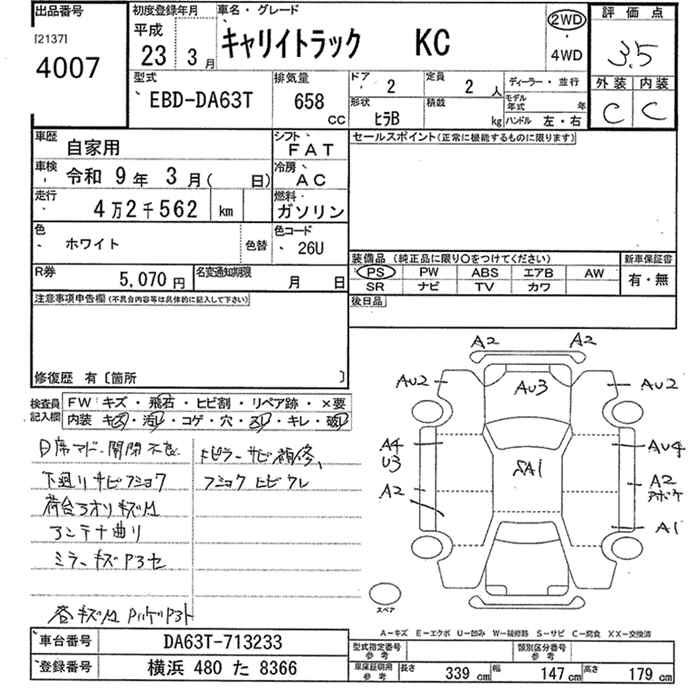 出品番号
[2137]
4007
初度登録年月
平成
23 3月
車名・グレード
キャリイトラック KC
2WD
・
4WD
評価点
3.5
外装 内装
C C
型式
EBD-DA63T
排気量
658 cc
ドア 2
定員 2人
ディーラー・並行
形状 ヒラB
積載 kg
モデル年式 年
ハンドル 左・右
車歴 自家用
シフト FAT
車検 令和 9年 3月( 日)
冷房 AC
走行 4万2千562 km
燃料 ガソリン
色 ホワイト
色替
色コード 26U
R券 5,070円
名変通知期限 月 日
セールスポイント(正常に機能するものに限ります)
装備品 (純正品に限り○をつけてください)
新車保証書
PS PW ABS エアB AW
SR ナビ TV カワ
有・無
後日品
注意事項申告欄(不具合内容等は具体的に記入して下さい)
修復歴 有〔箇所 〕
検査員記入欄
FW キズ・飛石・ヒビ割・リペア跡・×要
内装 キズ・汚レ・コゲ・穴・スレ・キレ・破レ
下廻りサビフショク
荷台アオリキズ凹
アンテナ曲り
フショク ヒビ ワレ
A2 A2
AU2 AU3 AU2
A4 AU4
U3
SA1
A2 A2
A1
スペア
A-キズ E-エクボ U-凹み W-補修跡 S-サビ C-腐食 XX-交換済
車台番号 DA63T-713233
登録番号 横浜 480 た 8366
型式指定番号 参考
類別区分番号 参考
車庫証明用 参考
長さ 339 cm
幅 147 cm
高さ 179 cm